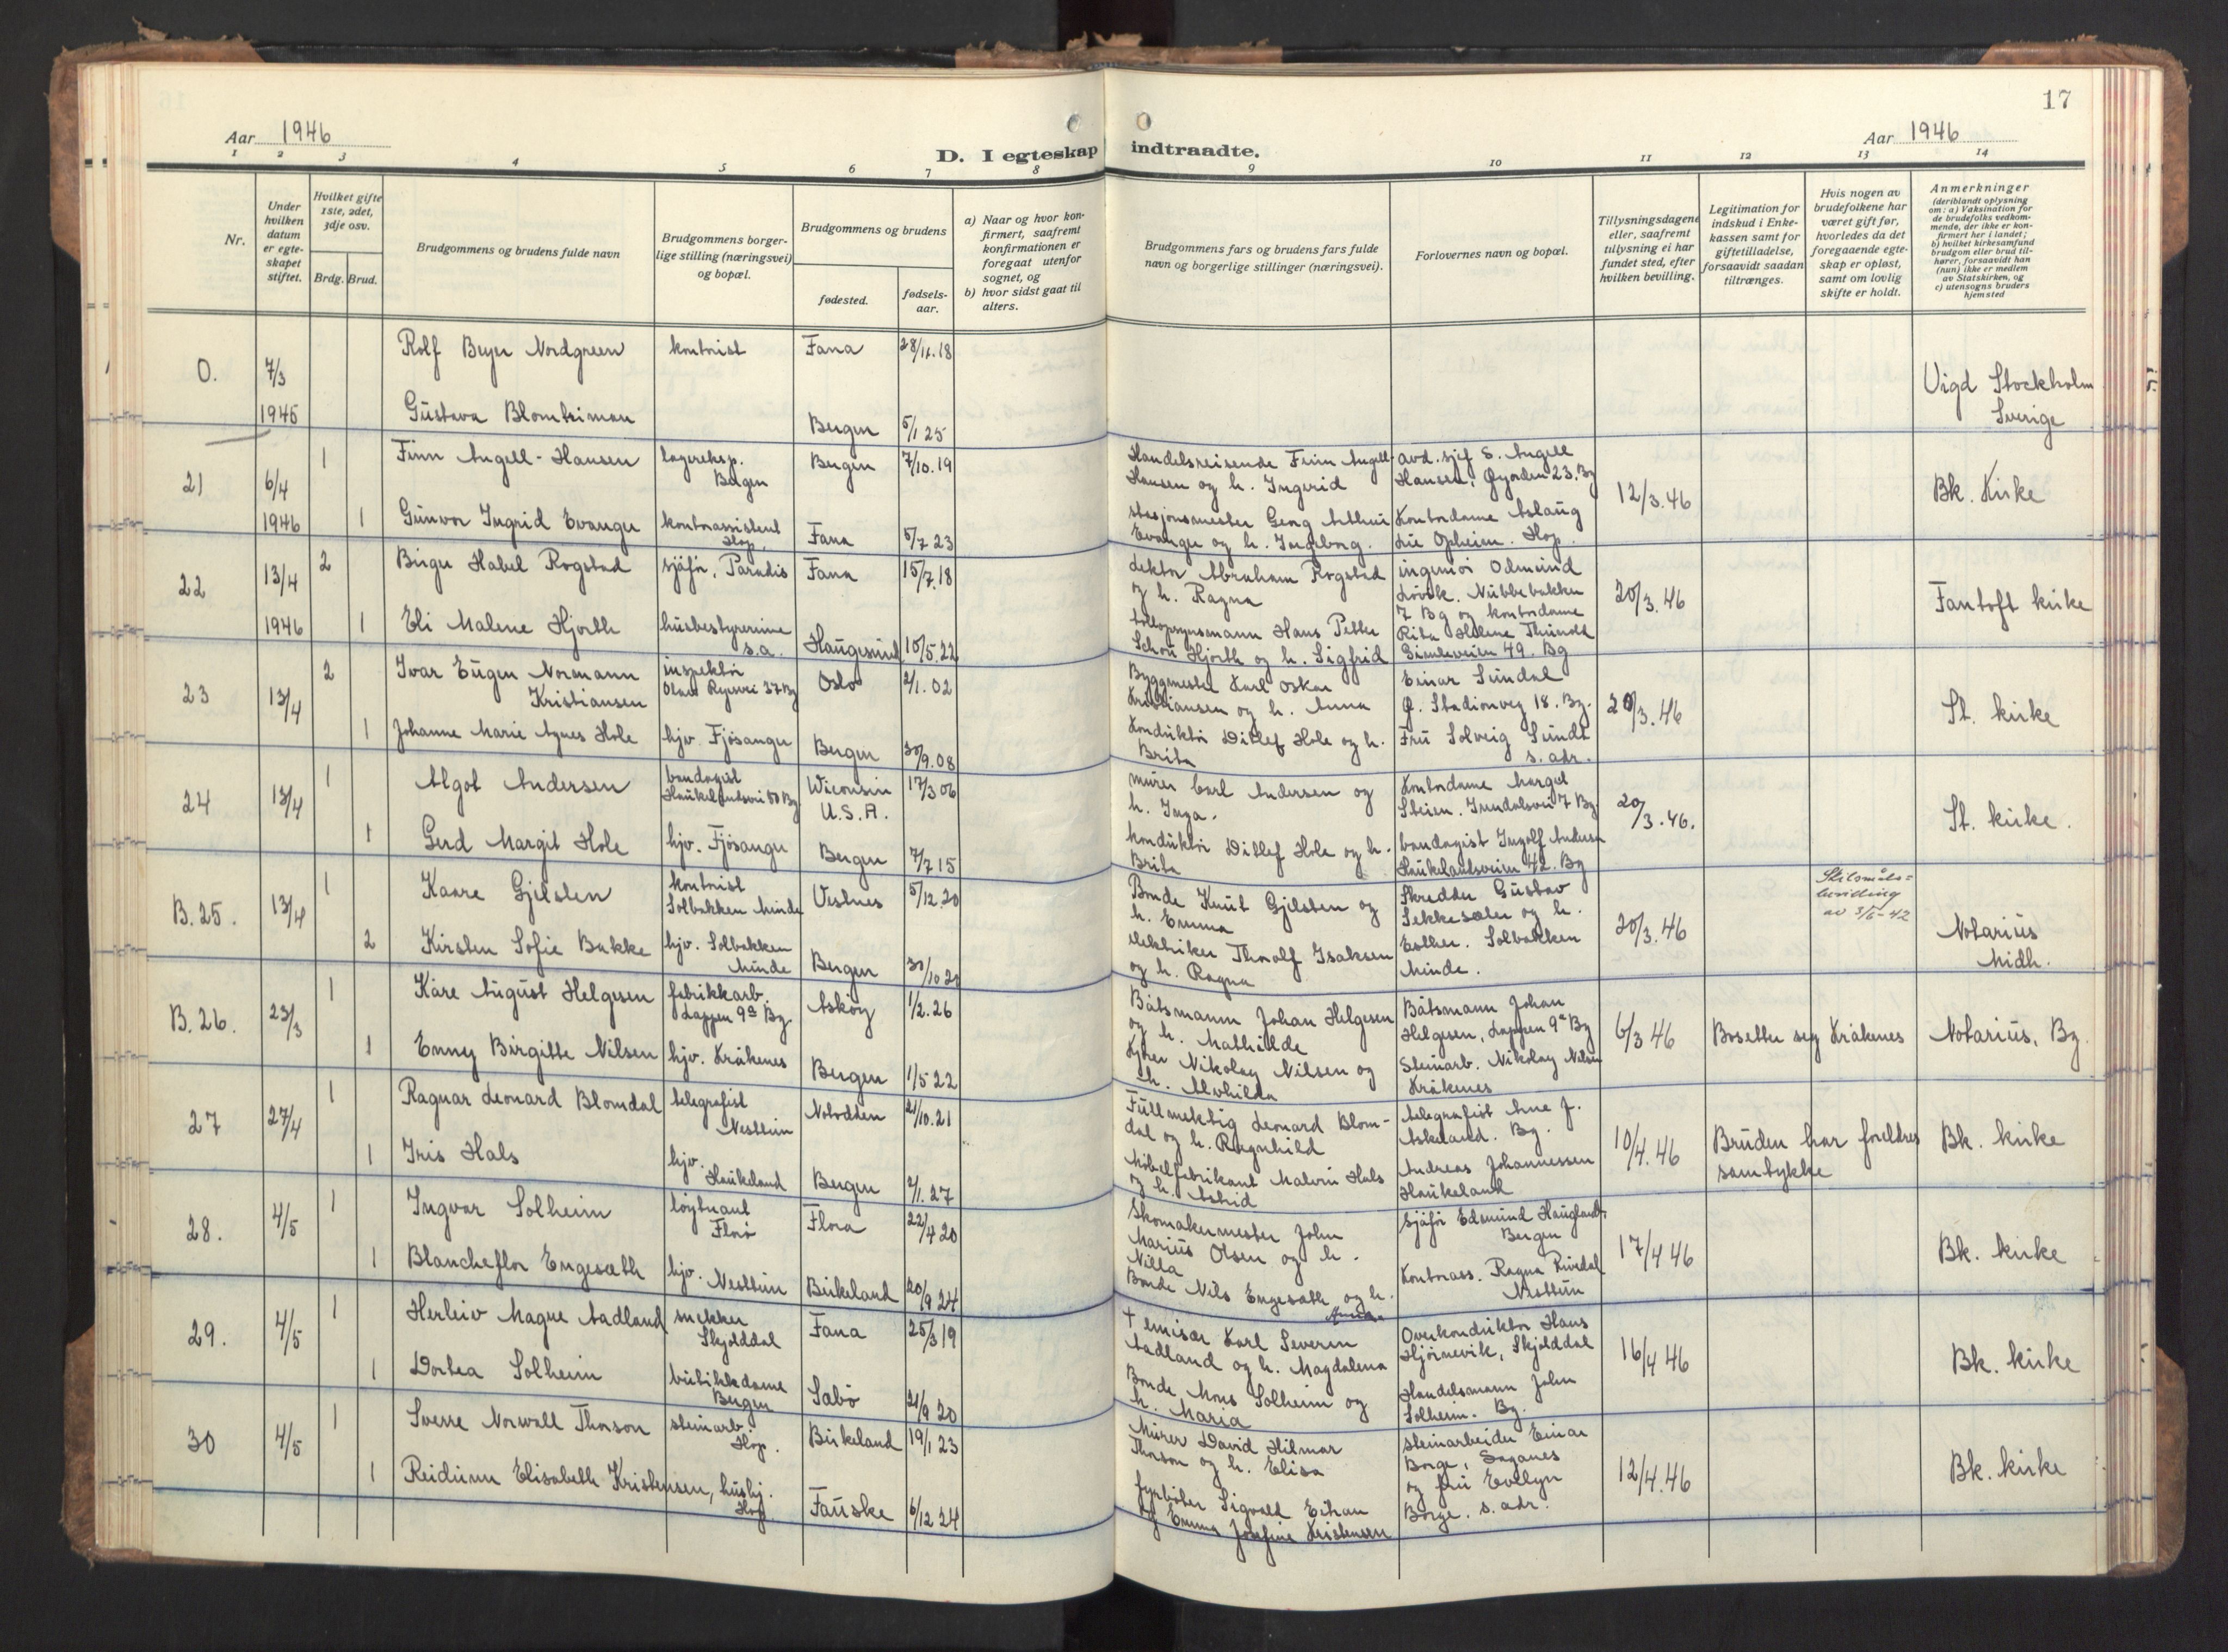 17
Aar 1946
D. I egteskap indtraadte.
Aar 1946
1 2 3 4 5 6 7 8 9 10 11 12 13 14
Nr.
Under hvilken datum er egteskapet stiftet.
Hvilket gifte 1ste, 2det, 3dje osv.
Brdg. Brud.
Brudgommens og brudens fulde navn
Brudgommens borgerlige stilling (næringsvei) og bopæl.
Brudgommens og brudens
fødested.
fødselsaar.
a) Naar og hvor konfirmert, saafremt konfirmationen er foregaat utenfor sognet, og
b) hvor sidst gaat til alters.
Brudgommens fars og brudens fars fulde navn og borgerlige stillinger (næringsvei).
Forlovernes navn og bopæl.
Tillysningsdagene eller, saafremt tillysning ei har fundet sted, efter hvilken bevilling.
Legitimation for indskud i Enkekassen samt for giftetilladelse, forsaavidt saadan tiltrænges.
Hvis nogen av brudefolkene har været gift før, hvorledes da det foregaaende egteskap er opløst, samt om lovlig skifte er holdt.
Anmerkninger (deriblandt oplysning om: a) Vaksination for de brudefolks vedkommende, der ikke er konfirmert her i landet; b) hvilket kirkesamfund brudgom eller brud tilhører, forsaavidt han (hun) ikke er medlem av Statskirken, og c) utensogns bruders hjemsted
0. 7/3 1945 Rolf Beyer Nordgreen kontorist Fana 28/11.18
Gustava Bergen 5/1 25
Vigd Stockholm Sverige
21 6/4 1946 1 Finn Angell-Hansen lagereksp. Bergen Bergen 7/10.19
Handelsreisende Finn Angell-Hansen og h. Ingerid
avd. sjef S. Angell Hansen, Øyjorden 23. Bg
12/3.46 Bk. Kirke
1 Gunvor Ingrid Evanger kontorassistent Hop. Fana 5/7 23
stasjonsmester Georg Evanger og h. Ingeborg.
Kontordame Aslaug Lie Opheim. Hop.
22 13/4 1946 2 Birger Habel Rogstad sjåfør, Paradis Fana 15/7.18
lektor Abraham Rogstad og h. Ragna
ingeniør Odmund Løvik. Nubbebakken 7 Bg og kontordame
20/3.46 Fantoft kirke
1 Eli Malene Hjorth husbestyrerinne s.a. Haugesund 10/5.22
tollopsynsmann Hans Petter Schou Hjorth og h. Sigfrid
Rita Helene 49. Bg
23 13/4 2 Ivar Eugen Normann Kristiansen inspektør Olaus Ryesvei 37 Bg Oslo 2/1.02
Byggmester Karl Oskar Kristiansen og h. Anna
Einar Sundal Ø. Stadionveg 18. Bg.
20/3.46 St. kirke
1 Johanne Marie Agnes Hole hjv. Fjøsanger Bergen 30/9.08
Konduktør Ditlef Hole og h. Brita
Fru Solveig Sundt s. adr.
24 13/4 1 Algot Andersen bandagist Haukelandsvei 50 Bg Wiconsin U.S.A. 17/3 06
murer Carl Andersen og h. Inga.
Kontordame Margot Steien. 7 Bg
20/3.46. St. kirke.
1 Gerd Margit Hole hjv. Fjøsanger Bergen 7/7 15
konduktør Ditlef Hole og h. Brita
bandagist Ingolf Andersen Haukelandsveien 42. Bg
B.25. 13/4 1 Kaare Gjelsten kontorist Solbakken Minde Vestnes 5/12.20
Bonde Knut Gjelsten og h. Emma
Skredder Gustav Sekkesæter og h.
20/3.46 Skilsmåls=bevilling av 3/5-42 Notarius Midh.
2 Kirsten Sofie Bakke hjv. Solbakken Minde Bergen 30/10 20
elektriker Thoralf Isaksen og h. Ragna
Esther. Solbakken Minde.
B.26. 23/3 1 Kåre August Helgesen fabrikkarb. Lappen 9a Bg. Askøy 1/2.26
Båtsmann Johan Helgesen og h. Mathilde
Båtsmann Johan Helgesen, Lappen 9a Bg
6/3 46 Bosetter seg Kråkenes Notarius, Bg.
1 Enny Birgitte Nilsen hjv. Kråkenes Bergen 1/5 22
Nikolay Nilsen og h. Alvhilda
Steinarb. Nikolay Nilsen Kråkenes
27 27/4 1 Ragnar Leonard Blomdal telegrafist Nesttun Notodden 21/10.21
Fullmektig Leonard Blomdal og h. Ragnhild
telegrafist Arne J. Askeland. Bg.
10/4.46 Bruden har foreldres samtykke Bk. kirke
1 Iris Hals hjv. Haukeland Bergen 2/1.27
Møbelfabrikant Malvin Hals og h. Astrid
Andreas Johannessen Haukeland
28. 4/5 1 Ingvar Solheim løytnant Florø Flora 22/4 20
Skomakermester John Marius Olsen og h. Nilla
Sjåfør Edmund Haugland. Bergen
17/4 46 Bk. kirke
1 Blancheflor Engesæth hjv. Nesttun Birkeland 20/9 24
Bonde Nils Engesæth og h.
Kontorass. Ragna Nesttun
29. 4/5 1 Herleiv Magne Aadland snekker Skjolddal Fana 25/3 19
† emisær Karl Severin Aadland og h. Magdalena
Overkonduktør Hans Hjørnevik, Skjolddal
16/4 46 Bk. kirke
1 Dortea Solheim butikkdame Bergen Sabø 21/9 20
Bonde Mons Solheim og h. Maria
Handelsmann John Solheim. Bg.
30 4/5 1 Sverre Norwall Thorson steinarb. Hop. Birkeland 19/1 23
Murer David Hilmar Thorson og h. Elisa
Steinarbeider Einar Borge, Saganes
12/4.46 Bk. kirke
1 Reidunn Elisabeth Kristensen, hushj. Hop. Fauske 6/12 24
fyrbøter Sigvald Kristensen og Emma Josefine
og fru Evelyn Borge. s. adr.